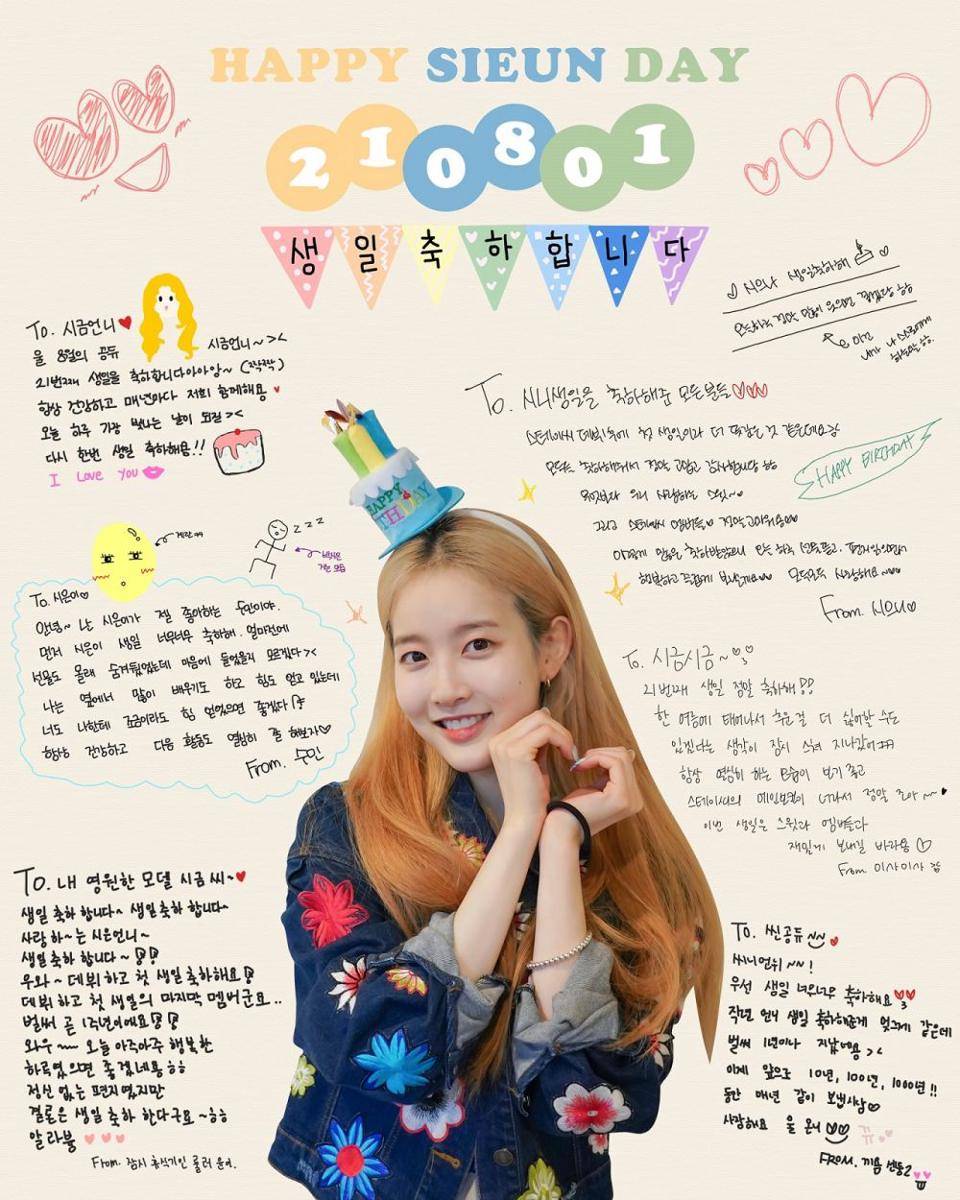 HAPPY SIEUN DAY
210801
생일축하합니다
♡ 시으나 생일축하해 ♡
To. 시금언니♥
시금언니~><
울 8월의 공듀
21번째 생일을 축하합니다아아앙~ (짝짝짝)
항상 건강하고 매년마다 저희 함께해요 ♥
오늘 하루 가장 빛나는 날이 되길 ><
다시 한번 생일 축하해용!!
I love you
To. 시니생일을 축하해준 모든분들♡♡♡
스테이씨 데뷔후에 첫 생일이라 더 뜻깊은 것 같은데요
모두 축하해줘서 정말 고맙고 감사합니당 ㅎㅎ
우리 사랑하는 스윗~♡
그리고 스테이씨 멤버들♡ 정말고마워용♡♡
HAPPY BIRTHDAY
From. 시으니♡
HAPPY BIRTHDAY
zzz
To. 시은이♡
안녕~ 난 시은이가 젤 좋아하는 수민이야.
먼저 시은이 생일 너무너무 축하해. 얼마전에
선물도 몰래 숨겨뒀었는데 마음에 들었을지 모르겠다><
나는 옆에서 많이 배우기도 하고 힘도 얻고 있는데
너도 나한테 조금이라도 힘 얻었으면 좋겠다
항상 건강하고 다음 활동도 열심히 잘 해보자♡
From. 수민
To. 시금시금~
21번째 생일 정말 축하해
한 여름에 태어나서 추운걸 더 싫어할 수도
있겠다는 생각이 잠시 스쳐 지나갔어
항상 열심히 하는 모습이 보기 좋고
스테이씨의 메인보컬이 너라서 정말 조아~~♥
이번 생일은 스윗과 멤버들과
재밌게 보내길 바라용 ♡
From 이사이사
To. 내 영원한 모델 시금 씨~♥
생일 축하 합니다~ 생일 축하 합니다~
사랑 하~는 시은언니~
생일 축하 합니다~
우와~ 데뷔 하고 첫 생일 축하해요
데뷔 하고 첫 생일의 마지막 멤버군요..
벌써 곧 1주년이에요
와우~~ 오늘 아주아주 행복한
하루였으면 좋겠네용 ㅎㅎ
정신 없는 편지였지만
결론은 생일 축하 한다구요 ~ㅎㅎ
알라뷰 ♥♥♥
From. 잠시 휴식기인 롤러 윤이.
To. 씬공듀 ~~ ♥
씨니언뉘 ~~ !
우선 생일 너무너무 축하해요 ♥♥
작년 언니 생일 축하해준게 엊그제 같은데
벌써 1년이나 지났네용 ><
이제 앞으로 10년, 100년, 1000년!!
동안 매년 같이 보냅시당♡
사랑해요 울 온니 ♡♡ 뀨